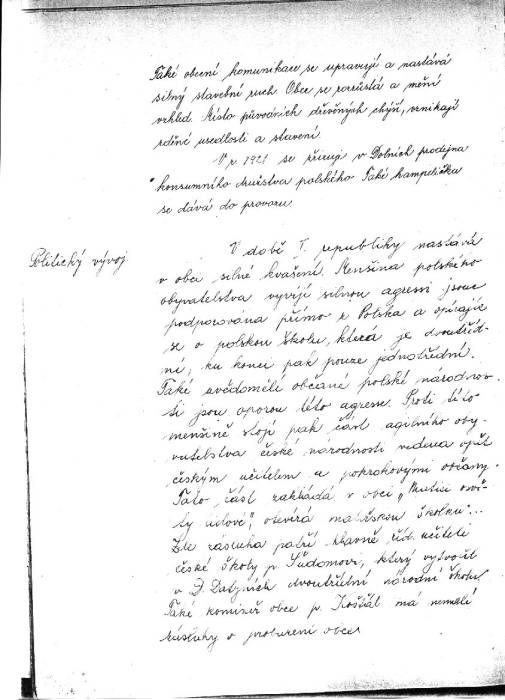 Také obecní komunikace se upravují a nastává
silný stavební ruch. Obec se rozrůstá a mění
vzhled. Místo původních dřevěných chýší, vznikají
zděné usedlosti a stavení.
V r. 1921 se zřizuje v Dolních prodejna
konsumního družstva polského. Také kampelička
se dává do provozu.
Politický vývoj.
V době I. republiky nastává
v obci silné kvašení. Menšina polského
obyvatelstva vyvíjí silnou agresi jsouc
podporována přímo z Polska a opírajíc
se o polskou školu, která je dvoutříd-
ní, ku konci pak pouze jednotřídní.
Také uvědomělí občané polské národnos-
ti jsou oporou této agrese. Proti této
menšině stojí pak část agilního oby-
vatelstva české národnosti vedena opět
českým učitelem a pokrokovými občany.
Tato část zakládá v obci "Matici osvě-
ty lidové", otevírá mateřskou školku...
Zde zásluha patří hlavně říd. učiteli
české školy p. Sudomovi, který vytvořil
v D. Datyních dvoutřídní národní školu.
Také komisař obce p. Košťál má nemalé
zásluhy o probuzení obce.